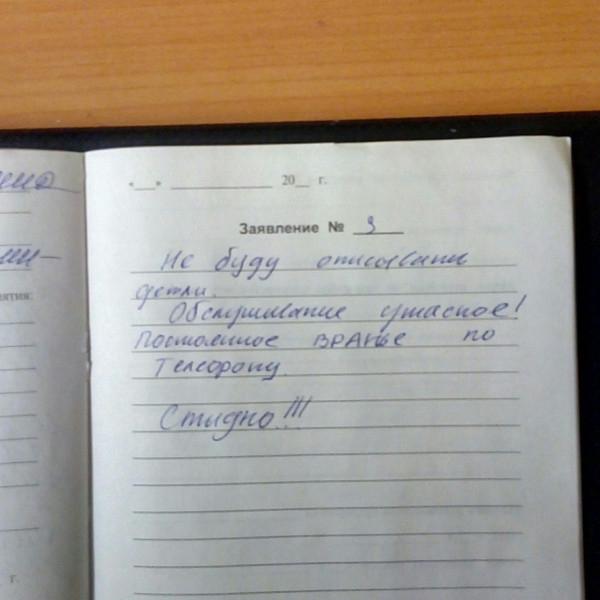 «___» ______________ 20__ г.
Заявление № 9
Не буду описывать
детали.
Обслуживание ужасное!
Постоянное ВРАНЬЕ по
Телефону.
Стыдно!!!
г.